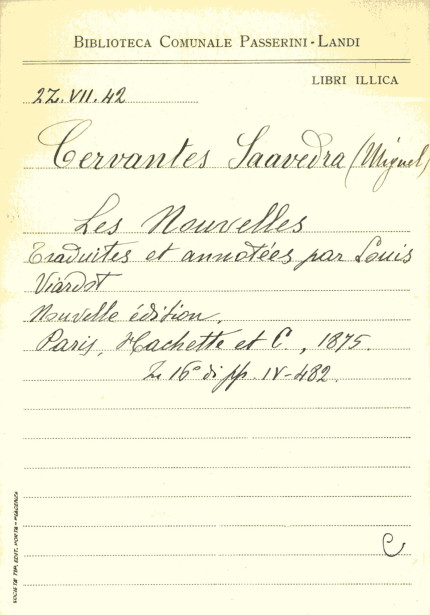 BIBLIOTECA COMUNALE PASSERINI-LANDI
LIBRI ILLICA
22.VII.42
Cervantes Saavedra (Miguel)
Les Nouvelles
Traduites et annotées par Louis
Viardot
Nouvelle édition.
Paris, Hachette et C., 1875.
In 16° di pp. IV-482.
C
SOCIETÀ TIP. EDIT. PORTA - PIACENZA